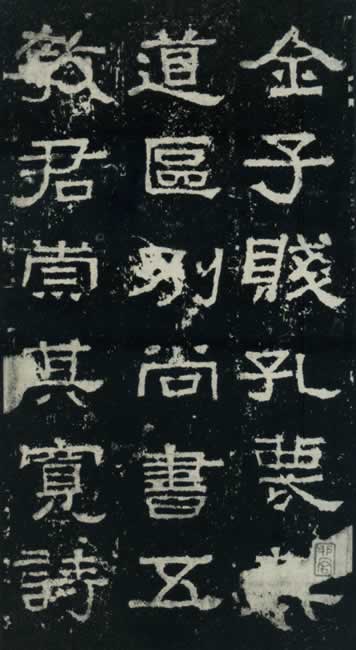 全子賤孔蔑其
道區別尚書五
教君崇其寬詩